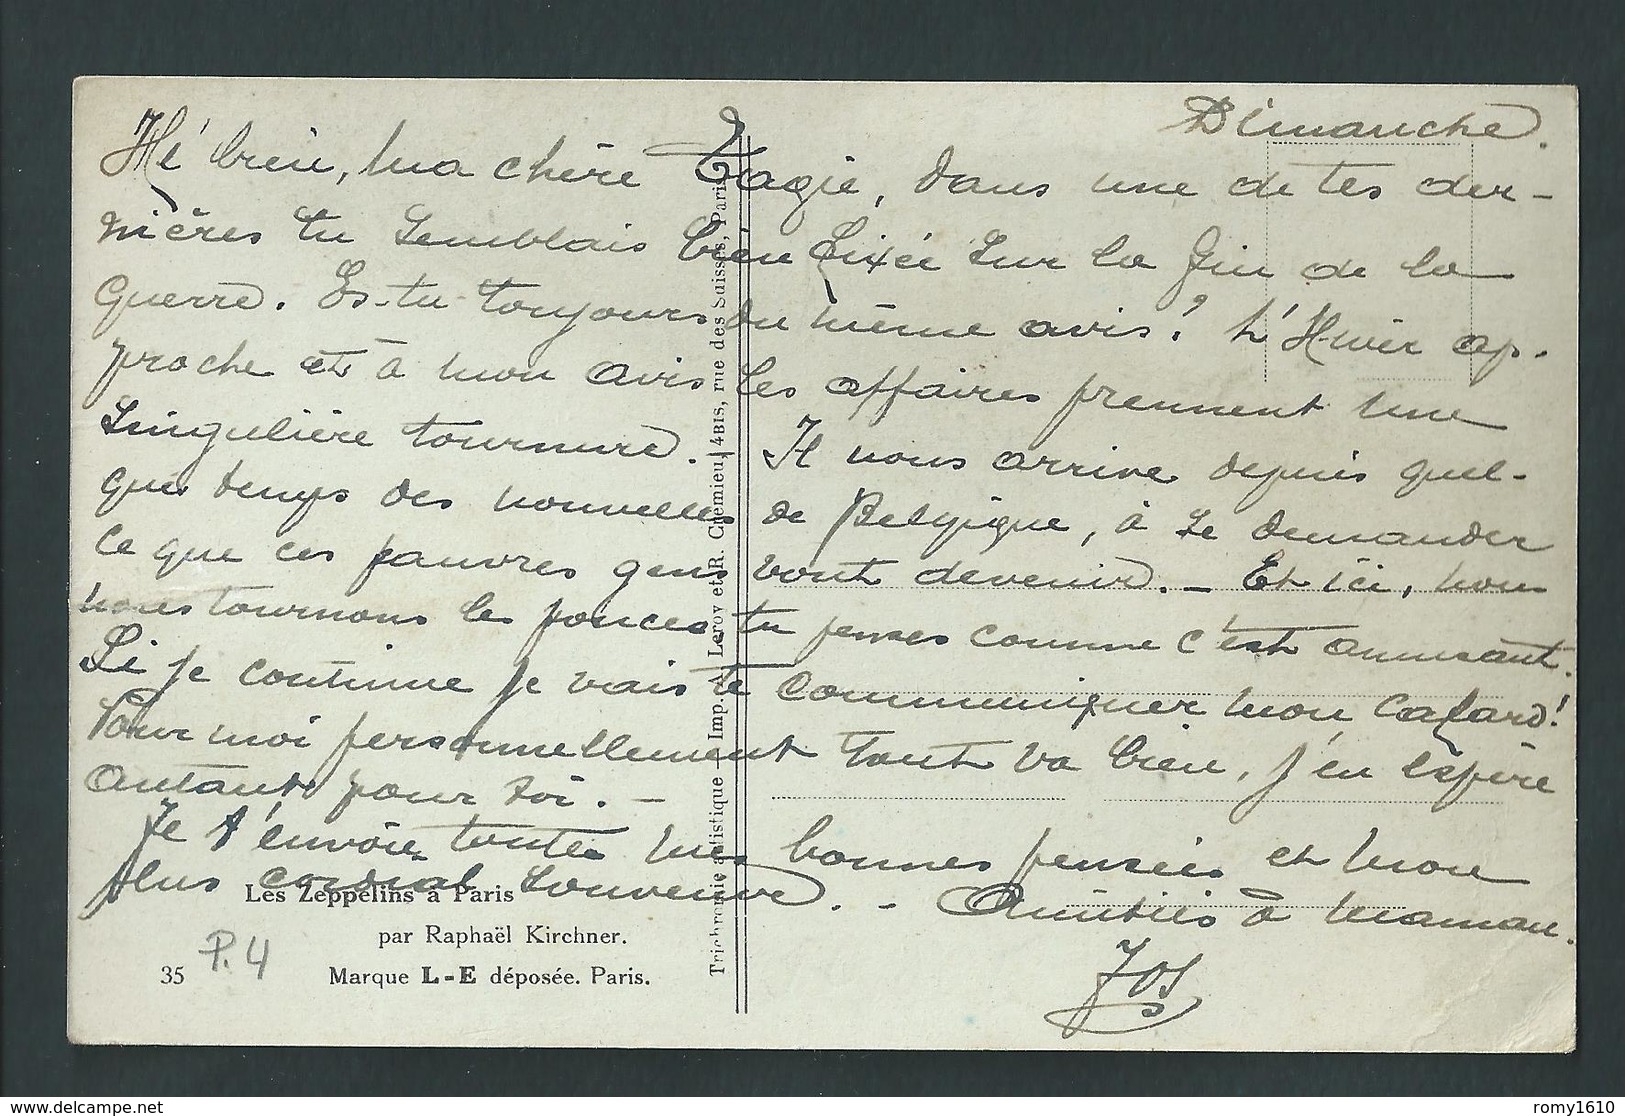 Dimanche.
Hé bien, ma chère Tagie, dans une de tes der-
nières tu semblais bien fixée sur la fin de la
guerre. Es-tu toujours du même avis? L'Hiver ap-
proche et à mon avis les affaires prennent une
singulière tournure. Il nous arrive depuis quel-
que temps des nouvelles de Belgique, à se demander
ce que ces pauvres gens vont devenir. — Et ici, nous
nous tournons les pouces tu penses comme c'est amusant.
Si je continue je vais te communiquer mon cafard!
Pour moi personnellement tout va bien, j'en espère
autant pour toi. —
Je t'envoie toutes mes bonnes pensées et mon
plus cordial souvenir. - Amitiés à maman.
Jos
Les Zeppelins à Paris
par Raphaël Kirchner.
35 Marque L-E déposée. Paris.
P.4
Trichromie artistique — Imp. A. Leroy et R. Crémieu, 4BIS, rue des Suisses, Paris
romy1610